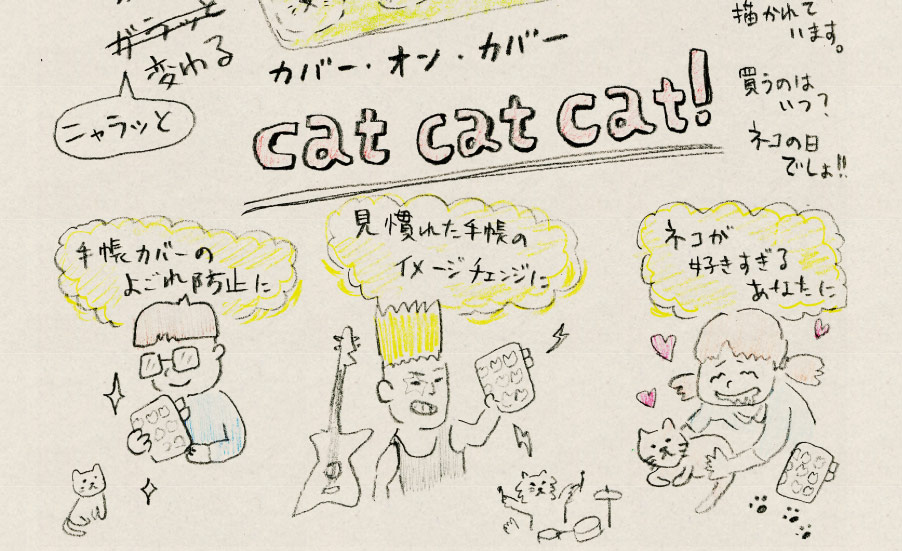 ガラッと
変わる
ニャラッと
カバー・オン・カバー
cat cat cat!
描かれて
います。
買うのは
いつ?
ネコの日
でしょ!!
手帳カバーの
よごれ防止に
見慣れた手帳の
イメージチェンジに
ネコが
好きすぎる
あなたに